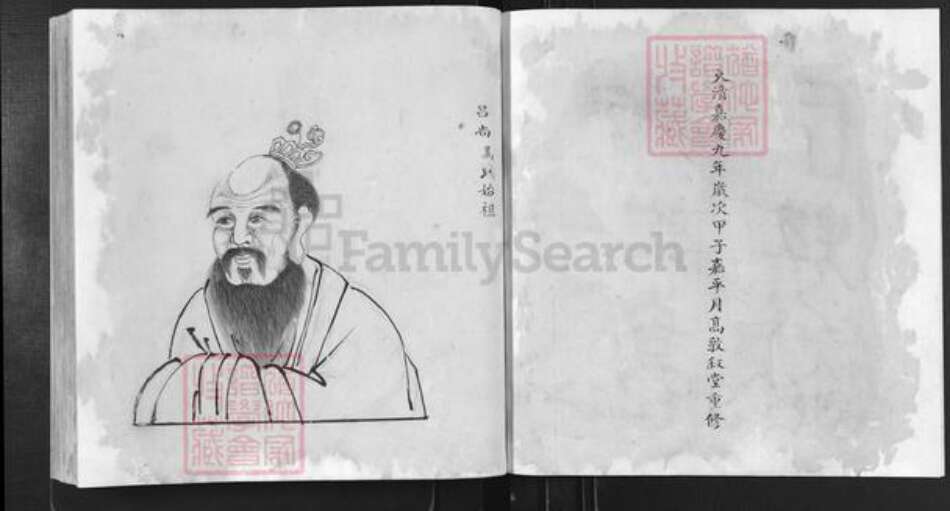 大清嘉慶九年歲次甲子嘉平月高敦敘堂重修
呂尚高氏始祖
FamilySearch